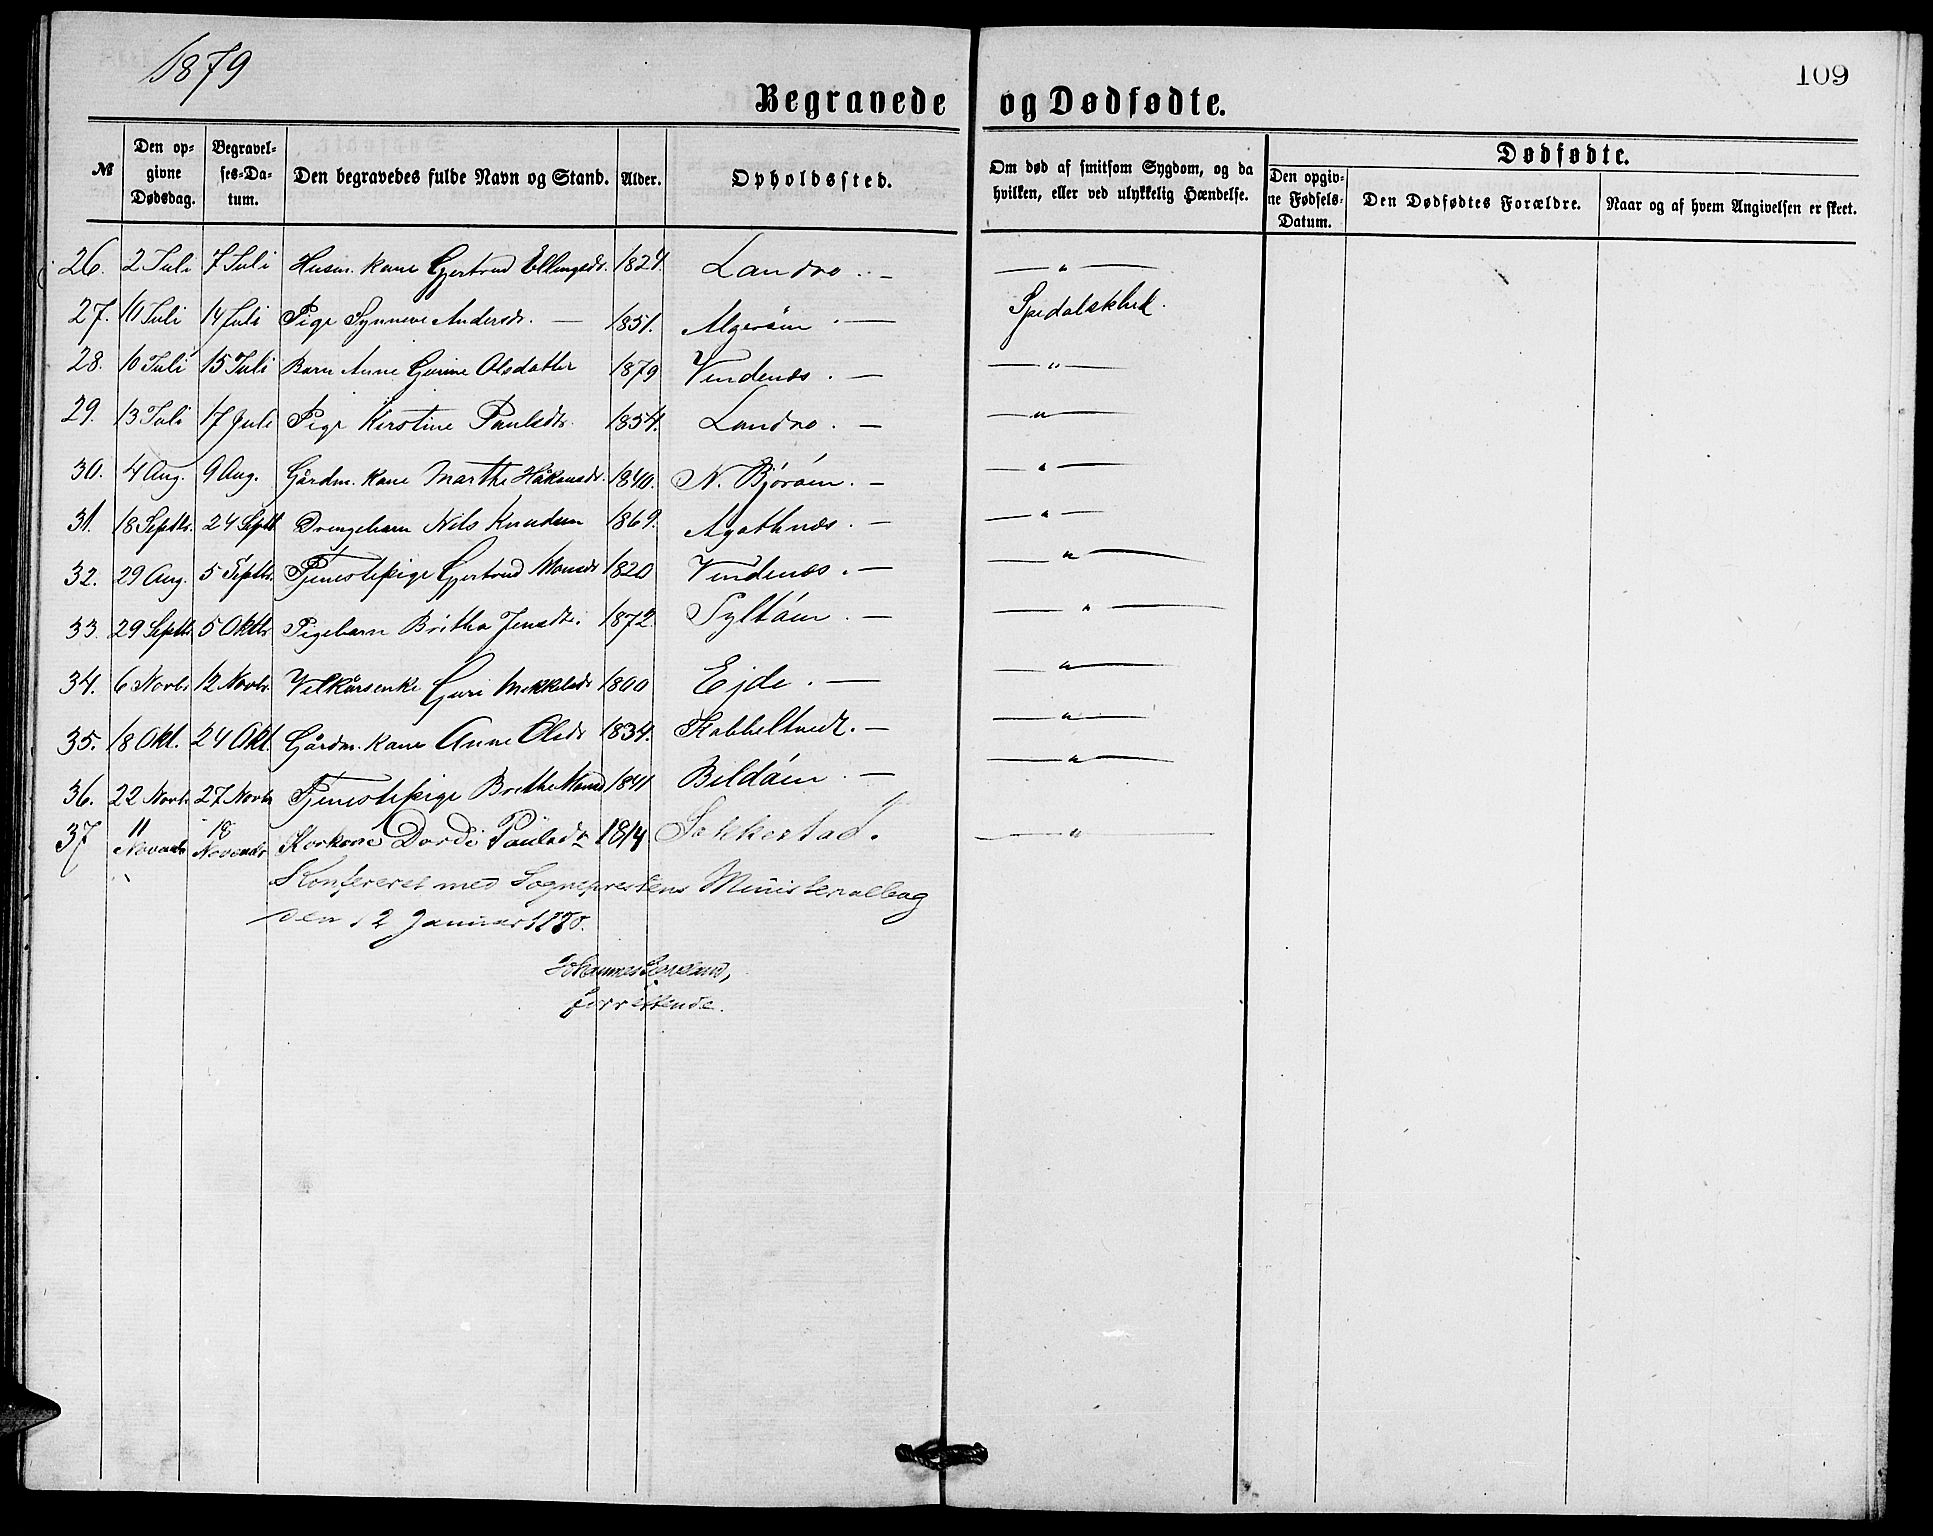 1879
109
Begravede og Dødfødte.
№ Den op- givne Dødsdag. Begravel- ses-Da- tum. Den begravedes fulde Navn og Stand. Alder. Opholdssted. Om død af smitsom Sygdom, og da hvilken, eller ved ulykkelig Hændelse. Dødfødte. Den opgiv- ne Fødsels- Datum. Den Dødfødtes Forældre. Naar og af hvem Angivelsen er skeet.
26. 2 Juli 7 Juli Husm. kone Gjertrud Ellingsdr. 1824. Landro. — — " —
27. 10 Juli 14 Juli Pige Synneve Andersdr. — 1851. Algerøin. — Spedalskhed.
28. 10 Juli 15 Juli Barn Anne Gurine Olsdatter 1879 Vindenæs. — — " —
29. 13 Juli 17 Juli Pige Kirstine Paulsdr. 1854. Landro. — — " —
30. 4 Aug. 9 Aug. Gårdm. kone Marthe Håkonsdr. 1840. N. Bjørøin. — — " —
31. 18 Septbr. 24 Septb Drengebarn Nils Knudsen 1869. Agothnæs. — — " —
32. 29 Aug. 5 Septbr. Tjenestepige Gjertrud Monsdr 1820 Vindenæs. — — " —
33. 29 Septbr. 5 Oktbr. Pigebarn Britha Jensdtr. 1872. Syltøin. — — " —
34. 6 Novbr. 12 Novbr. Vilkårsenke Guri Mikkelsdr 1800 Ejde. — — " —
35. 18 Okt. 24 Okt. Gårdm. kone Anne Olsdr 1834. Kobbeltvedt. — — " —
36. 22 Novbr. 27 Novbr Tjenestepige Brithe Monsd 1841 Bildøin. — — " —
37 11 Novembr 18 Novembr Dordi Paulsdr 1814 Sekkestad. — " —
Konfereret med Sogneprestens Ministerialbog
den 12 Januar 1880.
Johannes
forrettende.